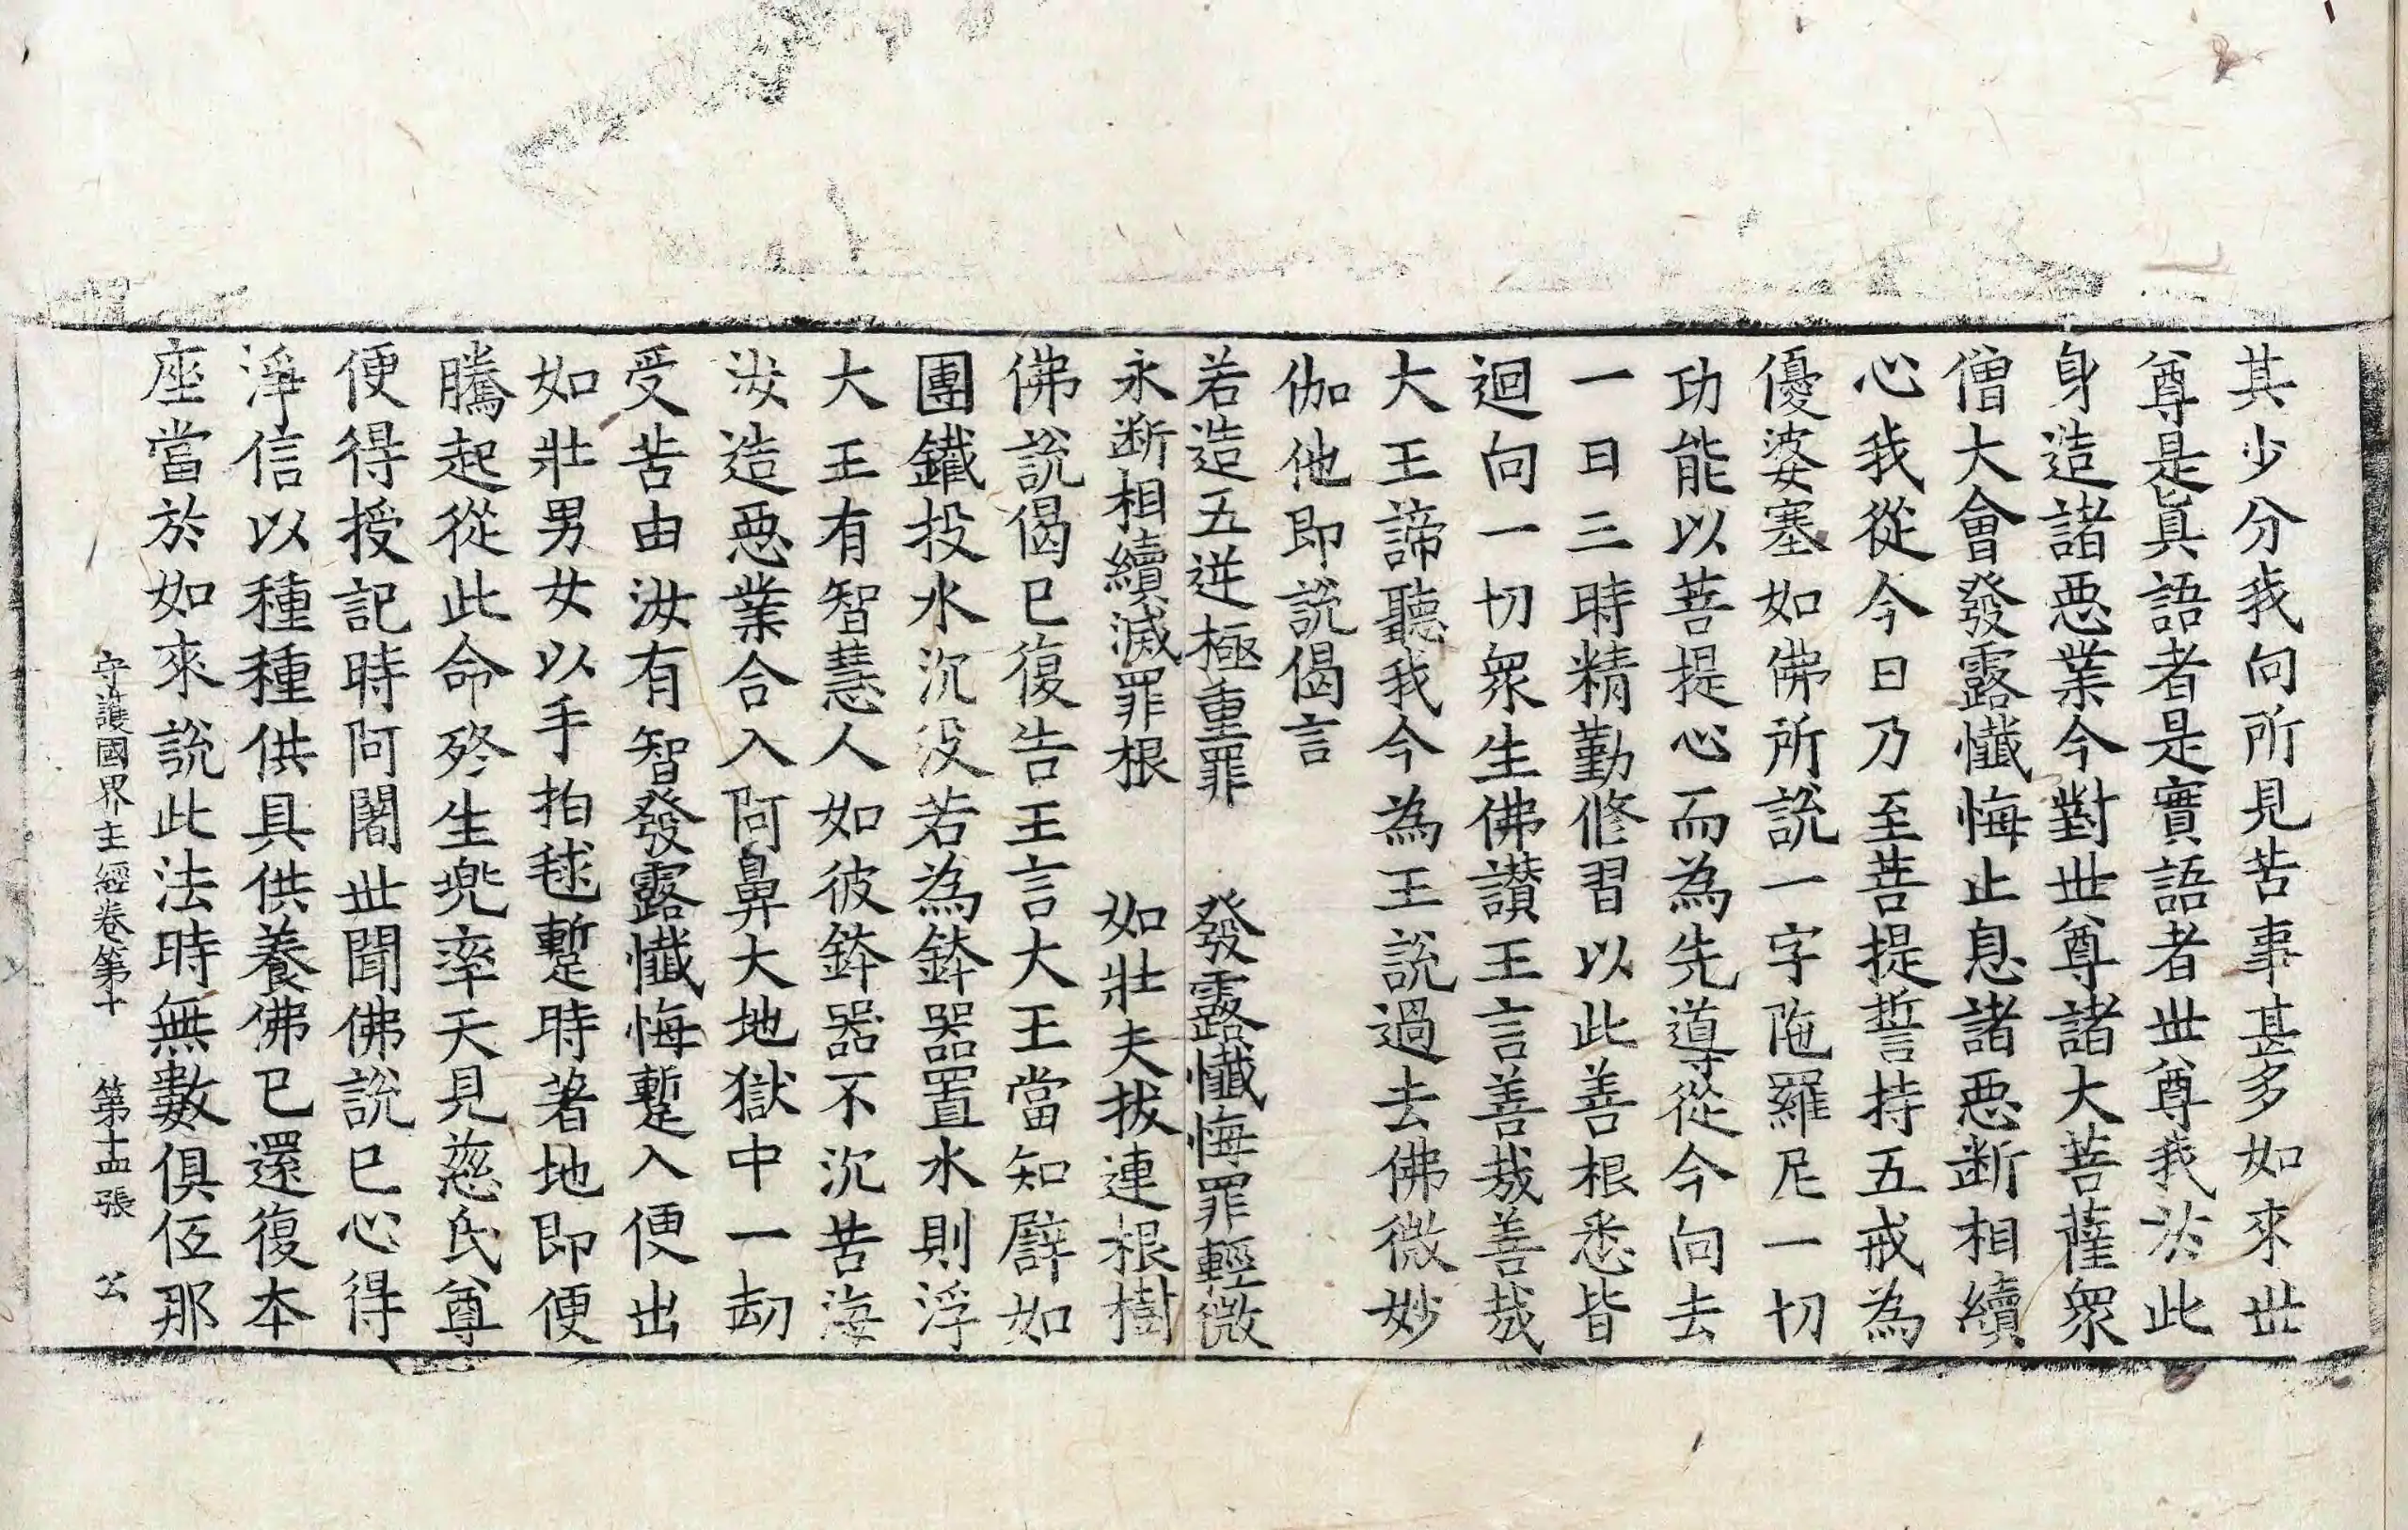 其少分我向所見苦事甚多如來世
尊是眞語者是實語者世尊我於此
身造諸惡業今對世尊諸大菩薩衆
僧大會發露懺悔止息諸惡断相續
心我從今日乃至菩提誓持五戒為
優婆塞如佛所說一字陁羅尼一切
功能以菩提心而為先導從今向去
一日三時精勤修習以此善根悉皆
迴向一切衆生佛讃王言善哉善哉
大王諦聽我今為王說過去佛微妙
伽他即說偈言
若造五逆極重罪　發露懺悔罪輕微
永断相續滅罪根　如壯夫拔連根樹
佛說偈已復告王言大王當知譬如
團鐵投水沉没若為鉢器置水則浮
大王有智慧人如彼鉢器不沉苦海
汝造惡業合入阿鼻大地獄中一劫
受苦由汝有智發露懺悔蹔入便出
如壯男女以手拍毬蹔時著地即便
騰起從此命終生兜率天見慈氏尊
便得授記時阿闍世聞佛說已心得
淨信以種種供具供養佛已還復本
座當於如來說此法時無數俱胝那
守護國界主經卷第十　第十四張　公